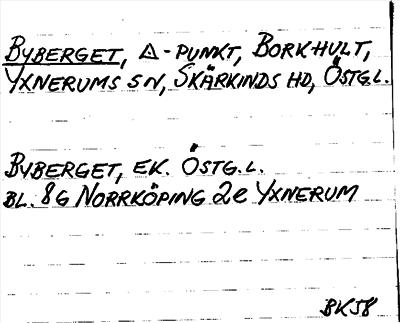 BYBERGET, △-PUNKT, BORKHULT,
YXNERUMS SN, SKÄRKINDS HD, ÖSTG.L.
BYBERGET, EK. ÖSTG.L.
BL. 8G NORRKÖPING 2e YXNERUM
BK58